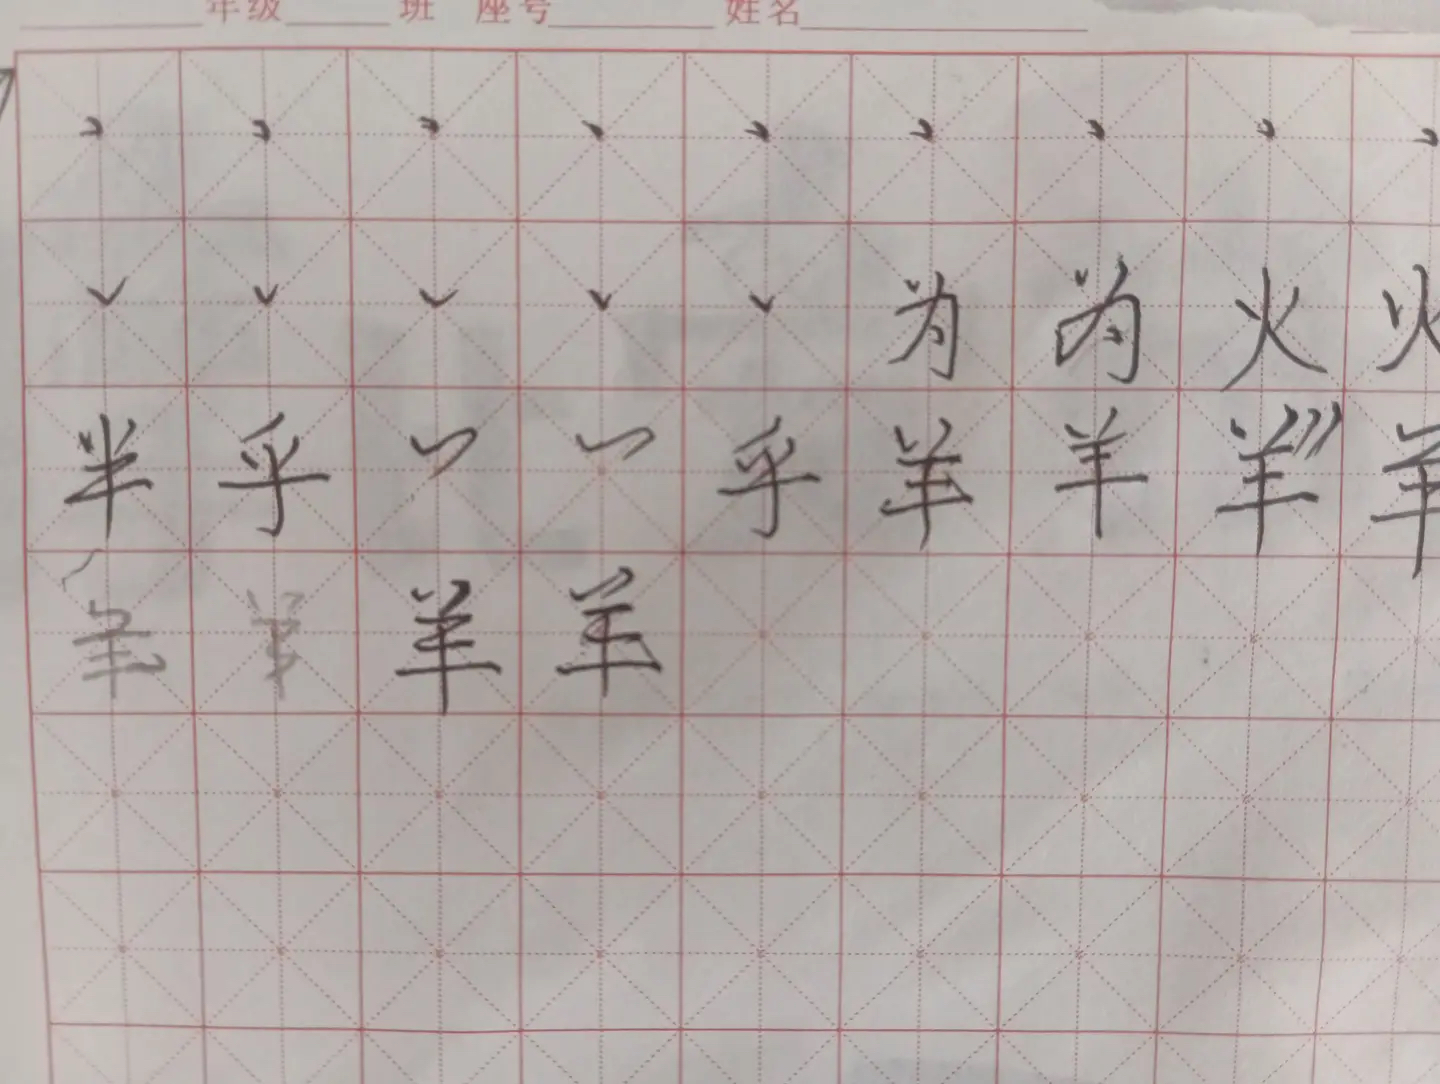 年级 班 座号 姓名
丶 丶 丶 丶 丶 丶 丶 丶 丶
为 为 火 火
半 乎 乎 羊 羊 羊 羊
羊 羊 羊 羊